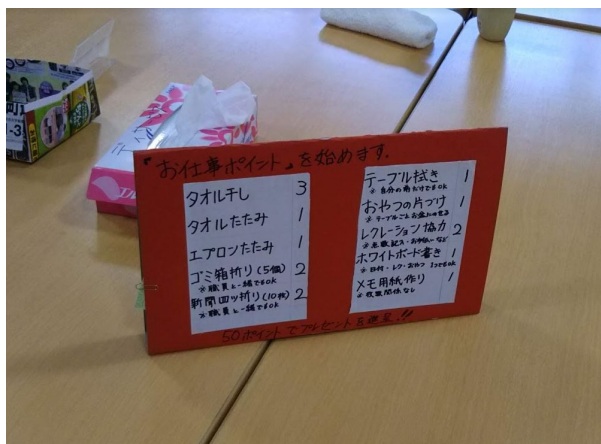 『お仕事ポイント』を始めます。
タオル干し 3
タオルたたみ 1
エプロンたたみ 1
ゴミ箱折り(5個) 2
※職員と一緒でもOK
新聞四ッ折り(10枚) 2
※職員と一緒でもOK
テーブル拭き 1
※自分の角だけでもOK
おやつの片づけ 1
※テーブルごとお盆にのせる
レクレーション協力 2
ホワイトボード書き 1
※日付・レク・おやつ 1つでもOK
メモ用紙作り 1
※枚数関係なし
50ポイントでプレゼントを進呈!!